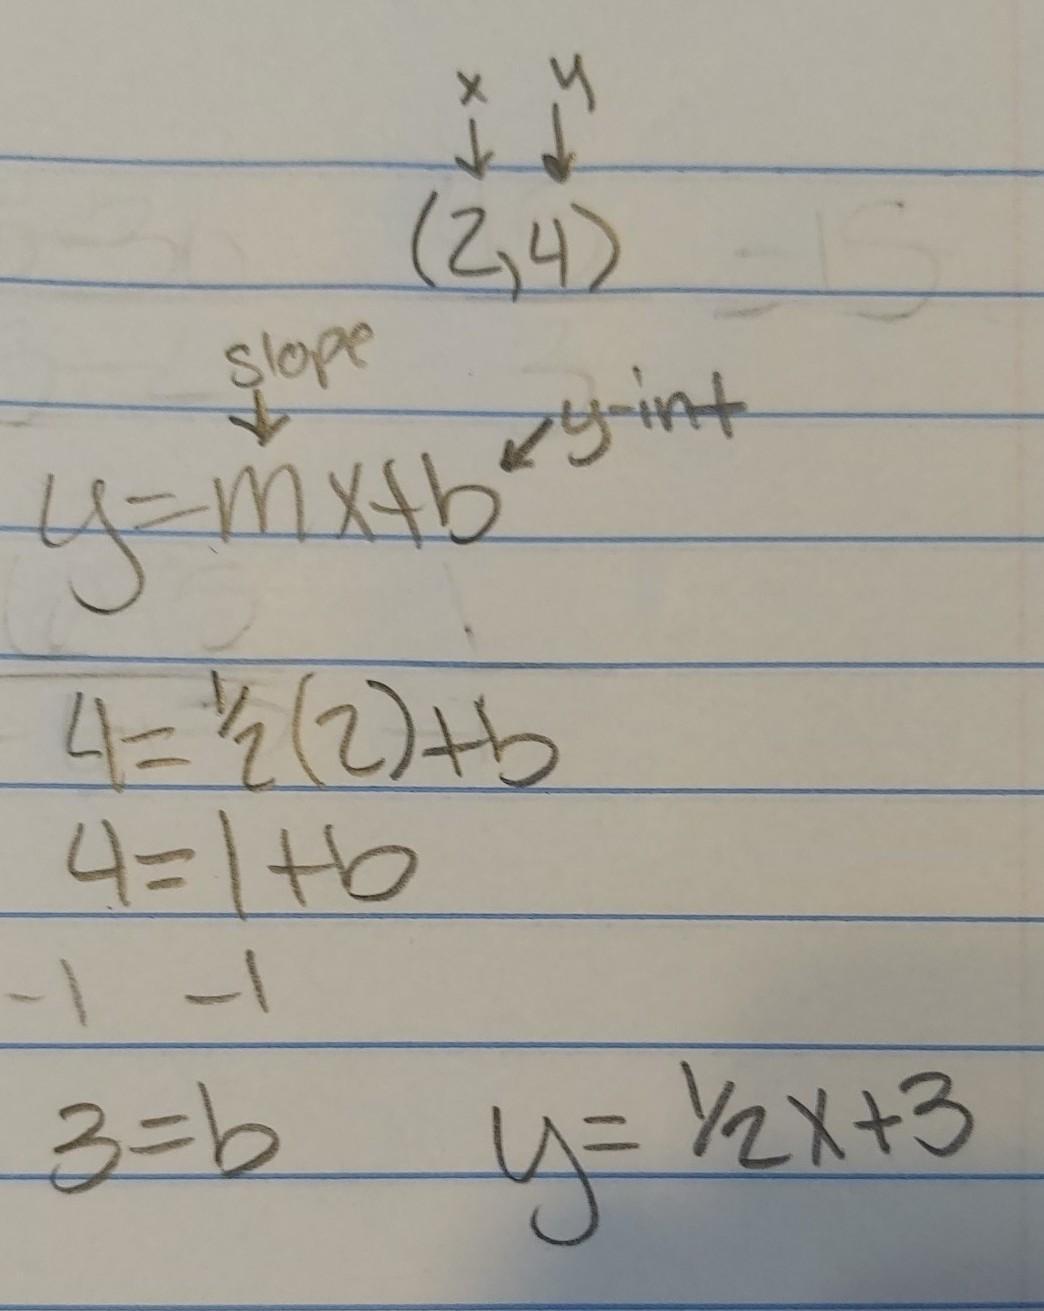 x y
↓ ↓
(2,4)
slope
↓ ↙ y-int
y=mx+b
4=1/2(2)+b
4=1+b
-1 -1
3=b y=1/2x+3